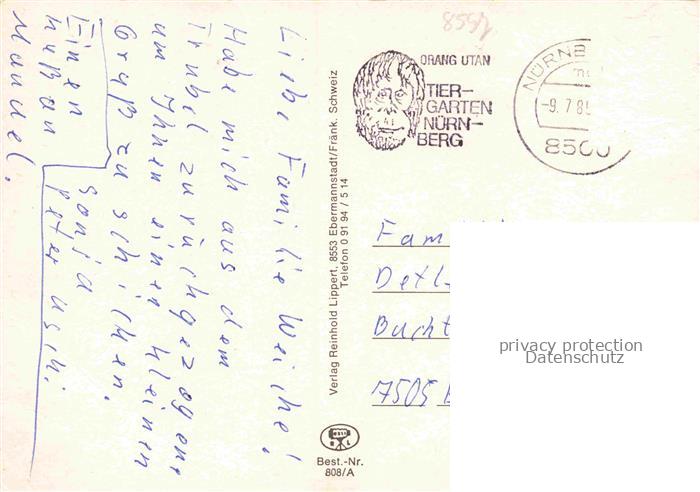 Liebe Familie Weiche!
Habe mich aus dem
Trubel zurückgezogen.
um Ihnen einen kleinen
Gruß zu schicken.
Sonja
Peter Uschi.
Einen
Manuel.
8551
ORANG UTAN
TIER-
GARTEN
NÜRN-
BERG
41
NÜRNB
-9.7.8
8500
Verlag Reinhold Lippert, 8553 Ebermannstadt/Fränk. Schweiz
Telefon 0 91 94 / 5 14
Fam
Detl
Bucht
7505
privacy protection
Datenschutz
R L
Best.-Nr.
808/A